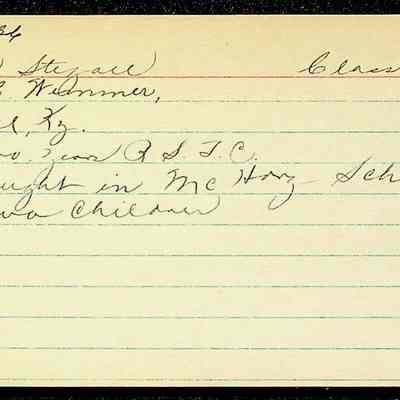 36
Stegall Class
Wimmer,
l, Ky.
wo Years R. S. T. C.
ught in McHarg Sch
wo Children